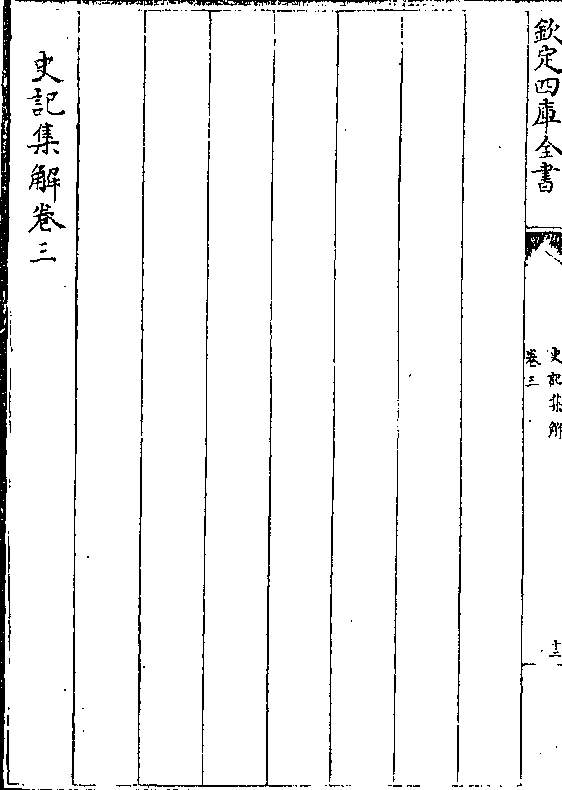 欽定四庫全書
史記集解
卷三
十二
史記集解卷三